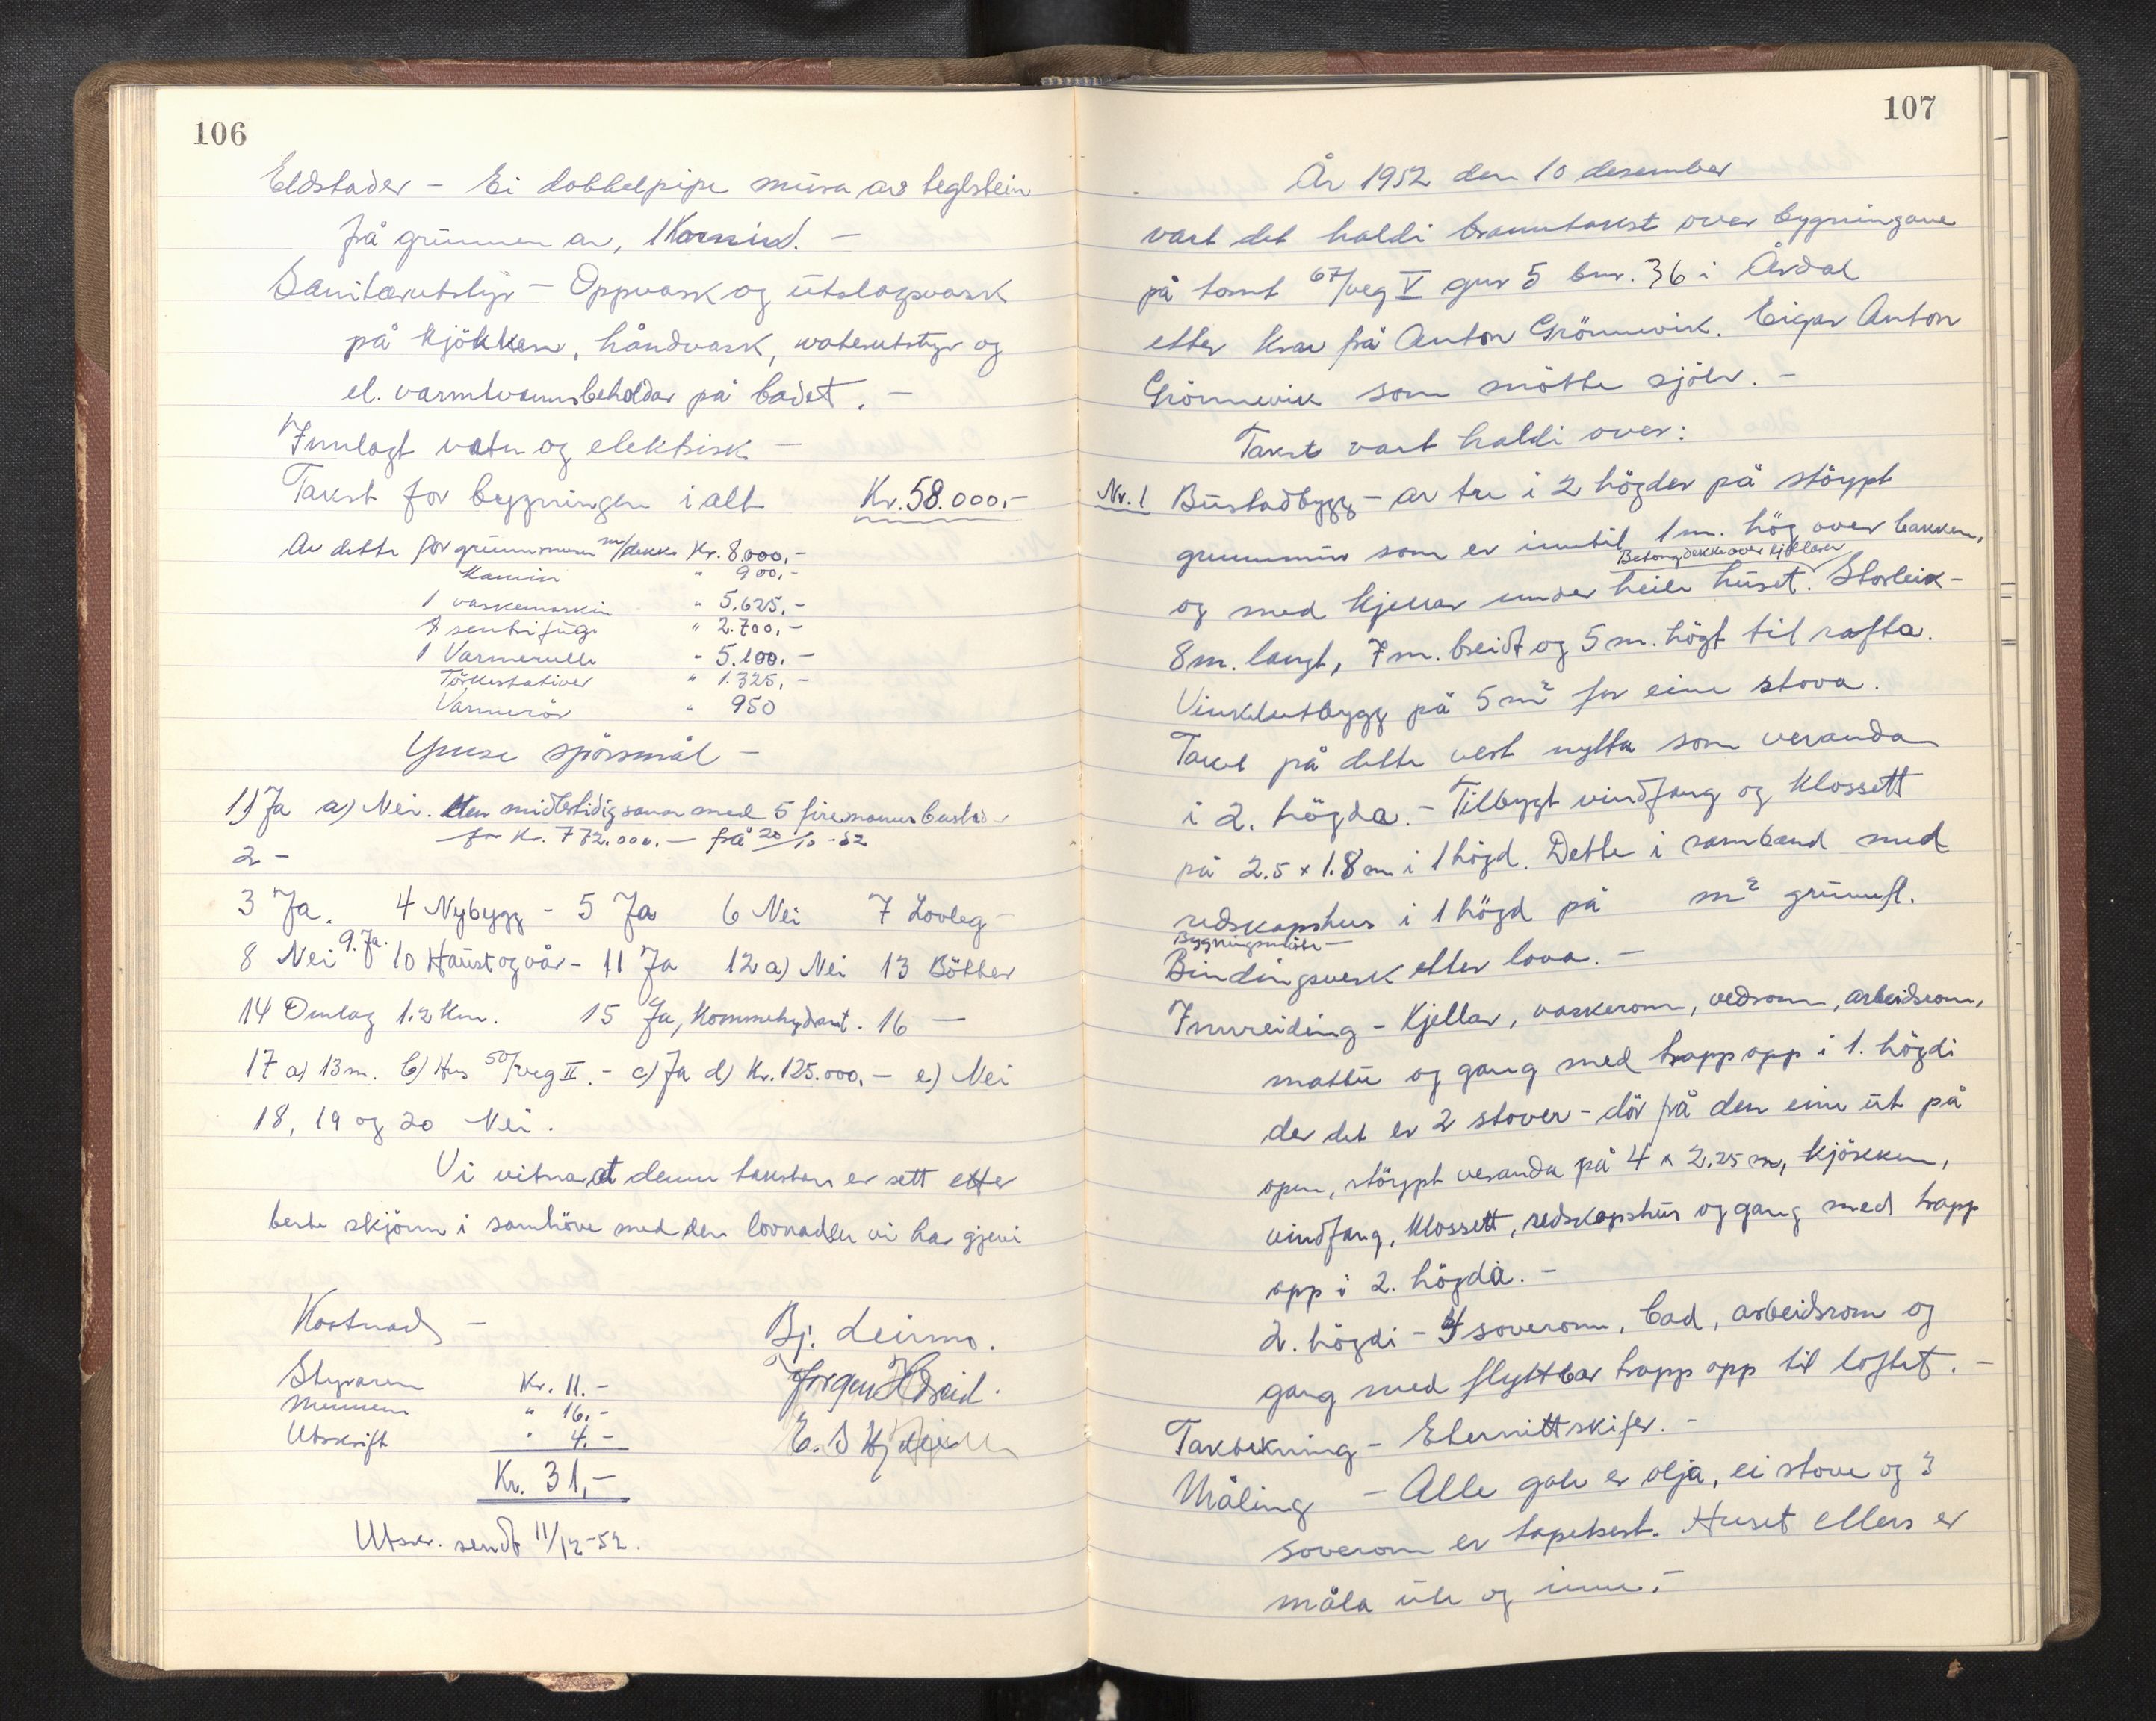 106
Eldstader - Ei dobbelpipe mura av teglstein
frå grunnen av, 1 Kamin. -
Sanitærutstyr - Oppvask og utslagsvask
på kjökken, håndvask, waterutstyr og
el. varmtvannsbeholdar på badet. -
Innlagt vatn og elektrisk -
Takst for bygningen i alt Kr. 58.000,-
Av dette for grunnmuren m/dekke Kr. 8.000,-
Kamin " 900,-
1 vaskemaskin " 5.625,-
1 sentrifuge " 2.700,-
1 Varmerulle " 5.100,-
Törkestativer " 1.325,-
Varmerör " 950
Ymse spörsmål -
1) Ja a) Nei. Men midlertidig saman med 5 firemannsbustader
for Kr. 772.000.- frå 20/10-52
2 -
3 Ja. 4 Nybygg - 5 Ja 6 Nei 7 Lovleg -
8 Nei 9. Ja. 10 Haust og vår - 11 Ja 12 a) Nei 13 Bötter
14 Omlag 1.2 Km. 15 Ja, Kommehydrant. 16 -
17 a) 13 m. b) Hus 50/veg II. - c) Ja d) Kr. 125.000,- e) Nei
18, 19 og 20 Nei.
Vi vitnar at denne taksten er sett etter
beste skjönn i samhöve med den lovnaden vi har gjevi
Kostnad -
Bj. Leirmo.
Styraren Kr. 11.-
Jörgen Hereid.
Mennene " 16.-
Utskrift " 4.-
E. S.
Kr. 31,-
Utskr. sendt 11/12-52.
107
År 1952 den 10 desember
vart det haldi branntakst over bygningane
på tomt 67/veg V gnr 5 bnr. 36 i Årdal
etter krav frå Anton Grönnevik. Eigar Anton
Grönnevik som mötte sjölv. -
Takst vart haldi over:
Nr. 1 Bustadbygg - av tre i 2 högder på stöypt
grunnmur som er inntil 1 m. hög over bakken,
Betongdekke over kjellaren
og med kjellar under heile huset. Storleik -
8 m. langt, 7 m. breidt og 5 m. högt til rafta.
Vinkelutbygg på 5 m² for eine stova.
Taket på dette vert nytta som veranda
i 2. högda. - Tilbygt vindfang og klossett
på 2.5 x 1.8 m i 1 högd. Dette i samband med
redskapshus i 1 högd på m² grunnfl.
Bygningsmåte -
Bindingsverk etter lova. -
Innreiding - Kjellar, vaskerom, vedrom, arbeidsrom,
matbu og gang med trapp opp i 1. högdi
der det er 2 stover - dör frå den eine ut på
open, stöypt veranda på 4 x 2.25 m, kjökken,
vindfang, klossett, redskapshus og gang med trapp
opp i 2. högda. -
2. högdi - 4 soverom, bad, arbeidsrom og
gang med flyttbar trapp opp til loftet. -
Takdekning - Eternittskifer. -
Måling - Alle golv er olja, ei stove og 3
soverom er tapetsert. Huset ellers er
måla ute og inne. -